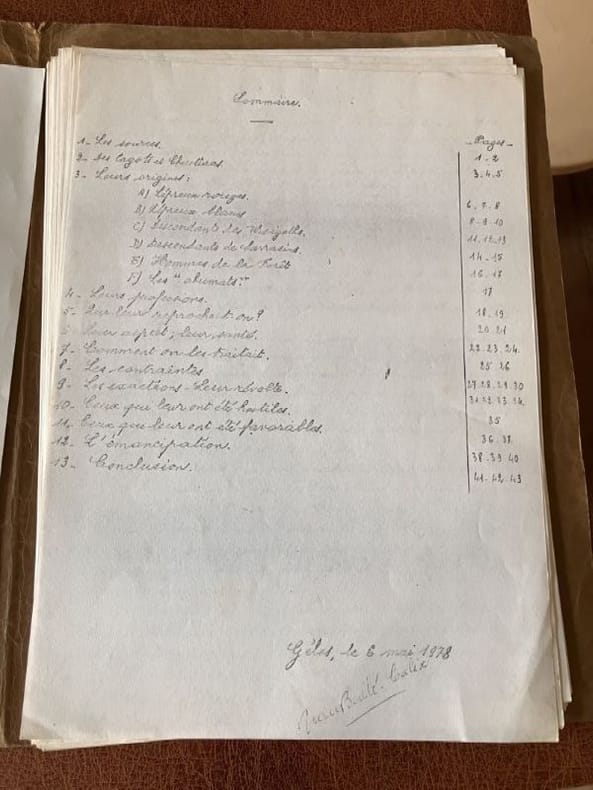 Sommaire.
- Pages -
1 - Les sources. 1 - 2
2 - Des Cagots et Chrestiaas 3.4.5
3 - Leurs origines :
A) Lépreux rouges. 6.7.8
B) Lépreux blancs 8-9.10
C) Descendants des Wisigoths. 11.12.13
D) Descendants de Sarrasins. 14-15
E) Hommes de la Forêt 16.17
F) Les " 17
4 - Leurs professions. 18.19
5 - Que leur reprochait on? 20.21
6 - Leur aspect, leur santé. 22.23.24.
7 - Comment on les traitait. 25.26
8 - Les contraintes. 27.28.29.30
9 - Les exactions - Leur révolte. 31.32.33.34.
10 - Ceux que leur ont été hostiles. 35
11 - Ceux que leur ont été favorables. 36.37.
12 - L'émancipation. 38.39.40
13 - Conclusion. 41-42-43
Gélos, le 6 mai 1978